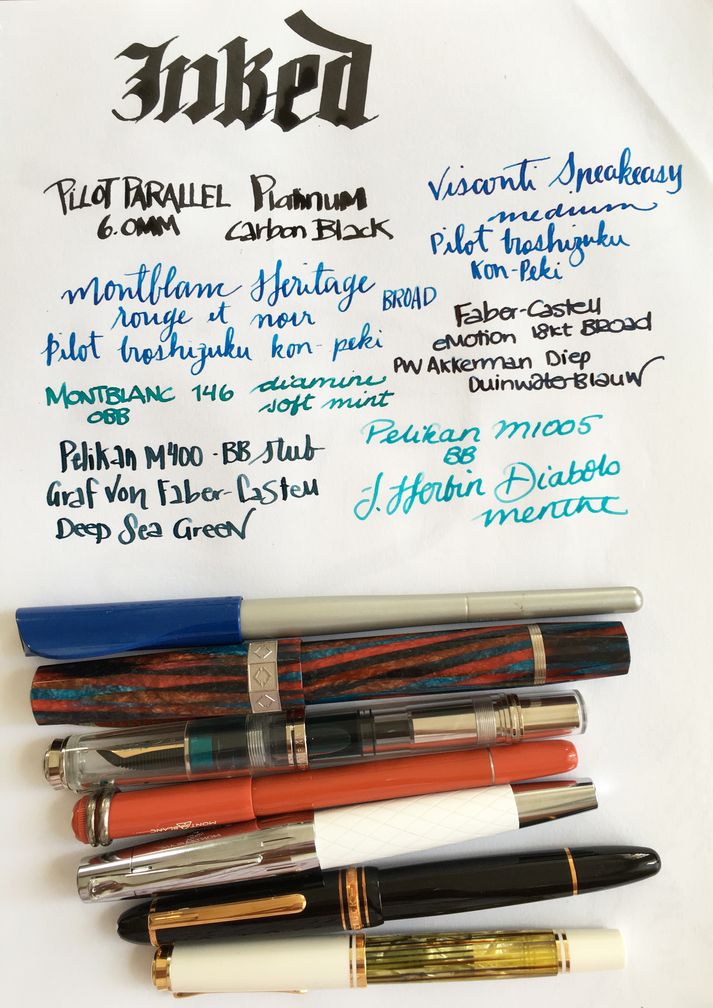 Inked
PILOT PARALLEL Platinum
6.0MM Carbon Black
Visconti Speakeasy
medium
Pilot Iroshizuku
Kon-Peki
montblanc Heritage BROAD
rouge et noir
Pilot Iroshizuku kon-peki
Faber-Castell
eMotion 18kt BROAD
PW Akkerman Diep
Duinwater-Blauw
MONTBLANC 146 diamine
OBB soft mint
Pelikan M1005
BB
J. Herbin Diabolo
menthe
Pelikan M400 - BB stub
Graf von Faber-Castell
Deep Sea Green
MONTBLANC